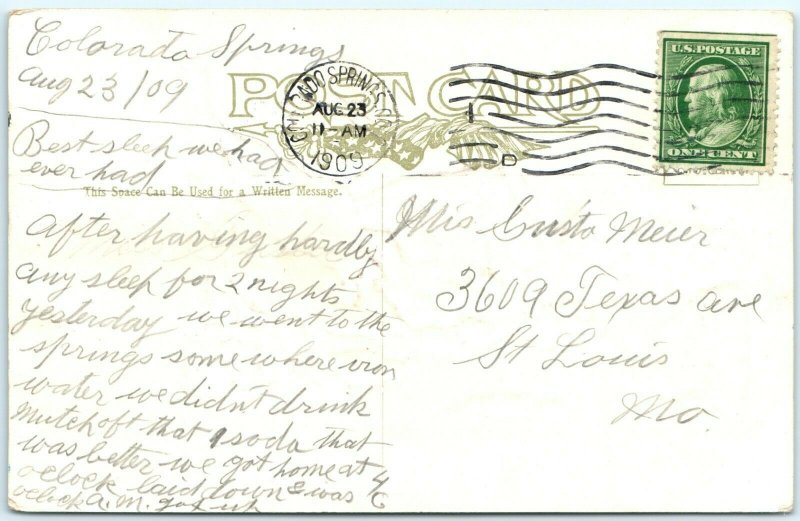 Colorado Springs
Aug 23/09
Best sleep we had
ever had
POST CARD
COLORADO SPRINGS
AUG 23
11-AM
1909
1
D
U.S. POSTAGE
ONE CENT
This Space Can Be Used for a Written Message.
After having hardly
any sleep for 2 nights
yesterday we went to the
springs somewhere iron
water we didn't drink
mutch oft that 1 soda that
was better we got home at 4
oclock laid down & was 6
oclock A.M. got up
Mis Gusto Meier
3609 Texas ave
St Louis
Mo.